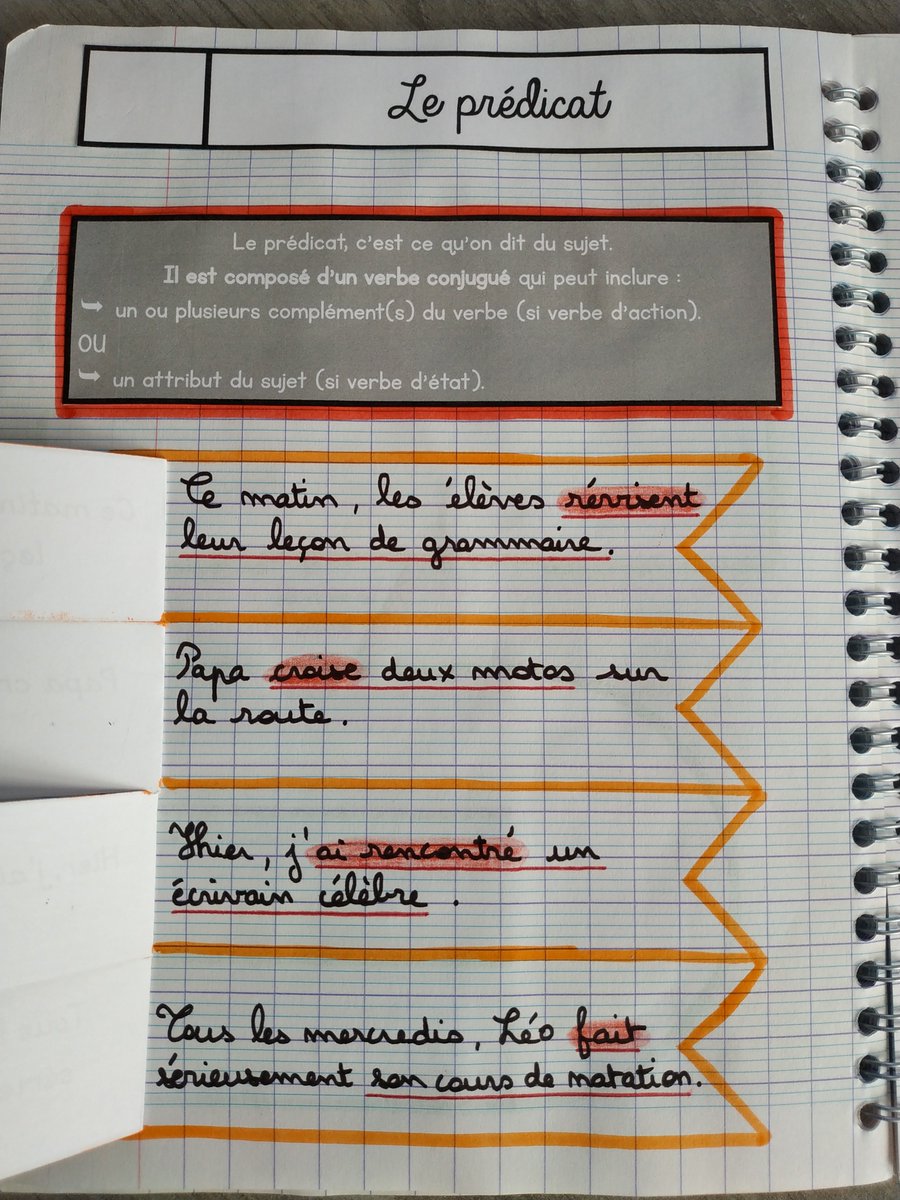 Le prédicat
Le prédicat, c'est ce qu'on dit du sujet.
Il est composé d'un verbe conjugué qui peut inclure :
➥ un ou plusieurs complément(s) du verbe (si verbe d'action).
OU
➥ un attribut du sujet (si verbe d'état).
Ce matin, les élèves révisent
leur leçon de grammaire.
Papa croise deux motos sur
la route.
Hier, j'ai rencontré un
écrivain célèbre.
Tous les mercredis, Léo fait
sérieusement son cours de natation.